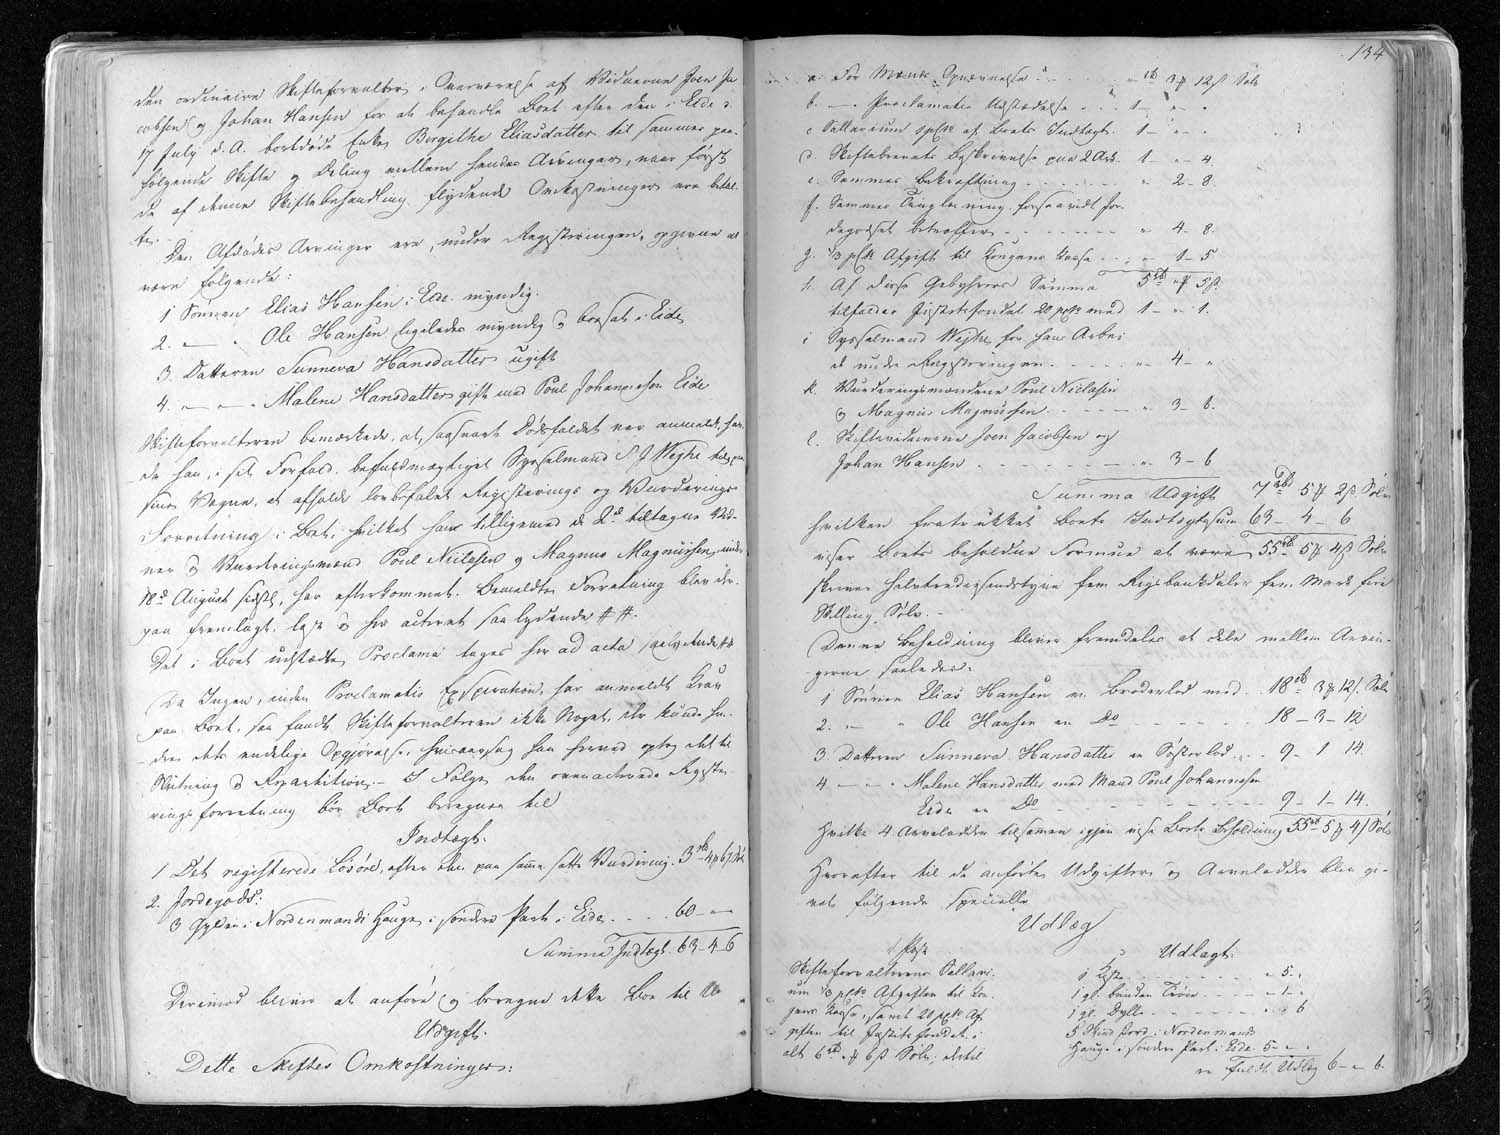 den ordinaire Skifteforvalter i Overværelse af Vidnerne Joen Ja-
cobsen og Johan Hansen for at behandle Boet efter den i Eide d.
17 July d. A. bortdøde Enke Birgithe Eliasdatter til sammes paa-
følgende Skifte og Deling mellem hendes Arvinger, naar først
de af denne Skiftebehandling flydende Omkostninger ere betal-
te.
Den Afdødes Arvinger ere, under Registeringen, opgivne at
være følgende:
1 Sønnen Elias Hansen i Eide myndig.
2. — " Ole Hansen ligeledes myndig og bosat i Eide
3. Datteren Sunneva Hansdatter ugift
4. — — " Malene Hansdatter gift med Poul Johannesen Eide
Skifteforvalteren bemærkede, at, saasnart Dødsfaldet var anmeldt, hav-
de han, i sit Forfald, befuldmægtiget Sysselmand S J Weyhe til, paa
sine Vegne, at afholde lovbefalet Registerings og Vurderings
Forretning i Boet, hvilket han tilligemed de 2de tiltagne Vid-
ner og Vurderingsmænd Poul Niclasen og Magnus Magnussen, under
18de August sidstl. har efterkommet. Bemeldte Forretning blev der-
paa fremlagt, læst og her acteret saa lydende ##.
Det i Boet udstædte Proclama tages her ad acta saalydende ##
Da Ingen, inden Proclamatis Exspiration, har anmeldt Krav
paa Boet, saa fandt Skifteforvalteren ikke Noget, der kunde hin-
dre dets endelige Opgjørelse, hvisaarsag han herved optog det til
Slutning og Repartition. — I Følge den oven acterede Registe-
rings forretning bør Boet beregnes til
Indtægt.
1 Det registerede Løsøre, efter den paa samme satte Vurdering. 3 rbd 4 ℳ 6 ß Sølv
2. Jordegods:
3 Gylden i Nordenmands Hauge i søndre Part i Eide . . . . 60 — " —
Summa Indtægt. 63 — 4 — 6
Derimod bliver at anføre og beregne dette Boe til
Udgift.
Dette Skiftes Omkostninger:
134
a. For Mænds Opnævnelse . . . . . " rbd 3 ℳ 12 ß Sølv
b. — " Proclamatis Udstædelse . . . 1 — " — "
c Sallarium 1 pCt af Boets Indtægt. 1 — " — "
d. Skiftebrevets Beskrivelse paa 2 Ark. 1 — " — 4.
e. Sammes bekræftning . . . . . . " 2 — 8.
f. Sammes Tinglæsning, forsaavidt Jor-
degodset betræffer . . . . . . . " 4 — 8.
g. ⅓ pCt Afgift til Kongens Kasse . . . " — 1 — 5
h. Af disse Gebyhrers Summa 5 rbd " ℳ 5 ß.
tilfalder Justitsfondet 20 pCto med 1 — " — 1.
i Sysselmand Weyhe for hans Arbei
de under Registeringen . . . . . " — 4 — "
k. Vurderingsmændene Poul Niclasen
og Magnus Magnussen . . . . . " 3 — 6.
l. Skiftevidnerne Joen Jacobsen og
Johan Hansen . . . . . . . . . " 3 — 6
Summa Udgift 7 rbd 5 ℳ 2 ß. Sølv
hvilken fratrukket Boets Indtægtssum 63 — 4 — 6
viser Boets beholdne Formue at være 55 rbd 5 ℳ 4 ß Sølv
skriver halvtredsindstyve fem Rigsbankdaler fem Mark fire
Skilling Sølv. —
Denne Beholdning bliver fremdeles at dele mellem Arvin-
gerne saaledes:
1 Sønnen Elias Hansen en Broderlod med . . 18 rbd 3 ℳ 12 ß Sølv
2. — " Ole Hansen en Do . . . . . . 18 — 3 — 12
3. Datteren Sunneva Hansdatter en Søsterlod . . . 9 — 1 — 14.
4 — — " Malene Hansdatter med Mand Poul Johannesen
Eide en Do . . . . . . . . . . 9 — 1 — 14.
Hvilke 4 Arvelodder tilsammen igjen vise Boets Beholdning 55 rbd 5 ℳ 4 ß Sølv
Herefter til de anførte Udgifter og Arvelodder blev gi-
vet følgende specielle
Udlæg
Post
Udlagt:
Skifteforvalterens Sallari-
um ⅓ pCto Afgiften til Kon-
gens Kasse, samt 20 pCto Af-
giften til Justitsfondet, i
alt 6 rbd " ℳ 6 ß Sølv, dertil
1 Kiste . . . . . . . " 5 "
1 gl. bunden Trøie . . . . — 1 — "
1 gl. Dylle . . . . . . " 6
5 Skind Jord i Nordenmands
Hauge i søndre Part i Eide. 5 — " — "
er fuldt Udlæg 6 — " — 6.